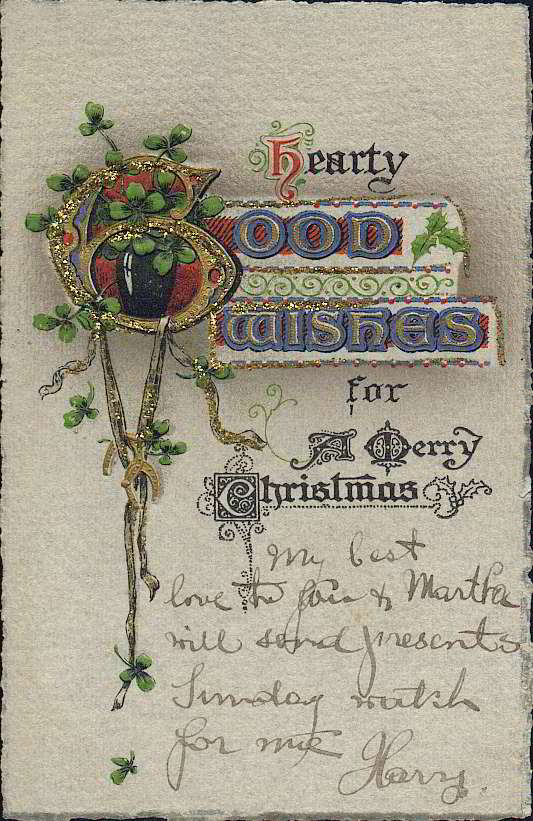 Hearty
GOOD
WISHES
for
A Merry
Christmas
My best
love to you & Martha
will send presents
Sunday watch
for me
Harry.